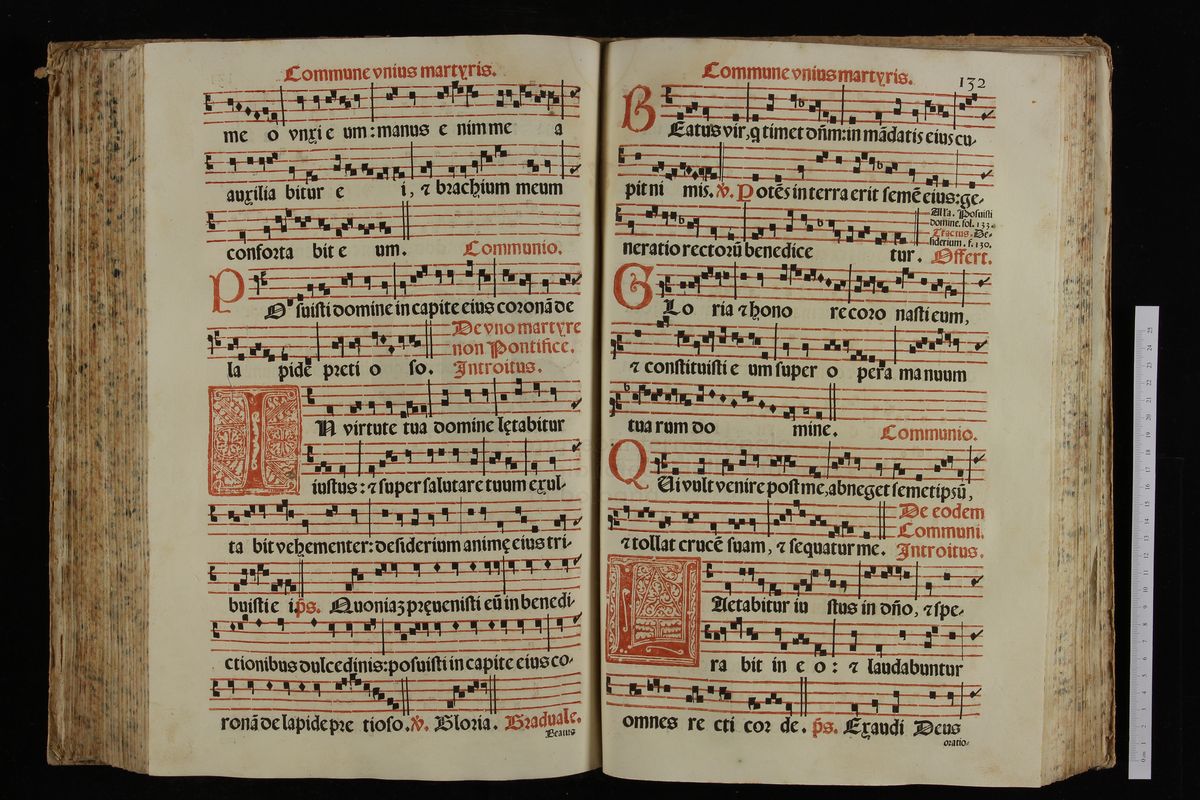 Commune vnius martyris.
me o vnxi e um: manus e nim me a
auxilia bitur e i, ⁊ brachium meum
conforta bit e um. Communio.
PO suisti domine in capite eius coronã de
la pidẽ preti o so. De vno martyre
non Pontifice.
Introitus.
IN virtute tua domine lętabitur
iustus: ⁊ super salutare tuum exul-
ta bit vehementer: desiderium animę eius tri-
buisti e i. p̃s. Quoniaʒ pręuenisti eũ in benedi-
ctionibus dulcedinis: posuisti in capite eius co-
ronã de lapide pre tioso. ℣. Gloria. Graduale.
Beatus
Commune vnius martyris. 132
BEatus vir, q timet dñm: in mãdatis eius cu-
pit ni mis. ℣. Potẽs in terra erit semẽ eius: ge-
neratio rectorũ benedice tur. Offert.
Alľa. Posuisti
domine. fol. 133.
Tractus. De-
siderium. f. 130.
GLo ria ⁊ hono re coro nasti eum,
⁊ constituisti e um super o pera ma nuum
tua rum do mine. Communio.
QUi vult venire post me, abneget semetipsũ,
⁊ tollat crucẽ suam, ⁊ sequatur me. De eodem
Communi.
Introitus.
LAetabitur iu stus in dño, ⁊ spe-
ra bit in e o: ⁊ laudabuntur
omnes re cti cor de. p̃s. Exaudi Deus
oratio-
0 cm 1 2 3 4 5 6 7 8 9 10 11 12 13 14 15 16 17 18 19 20 21 22 23 24 25